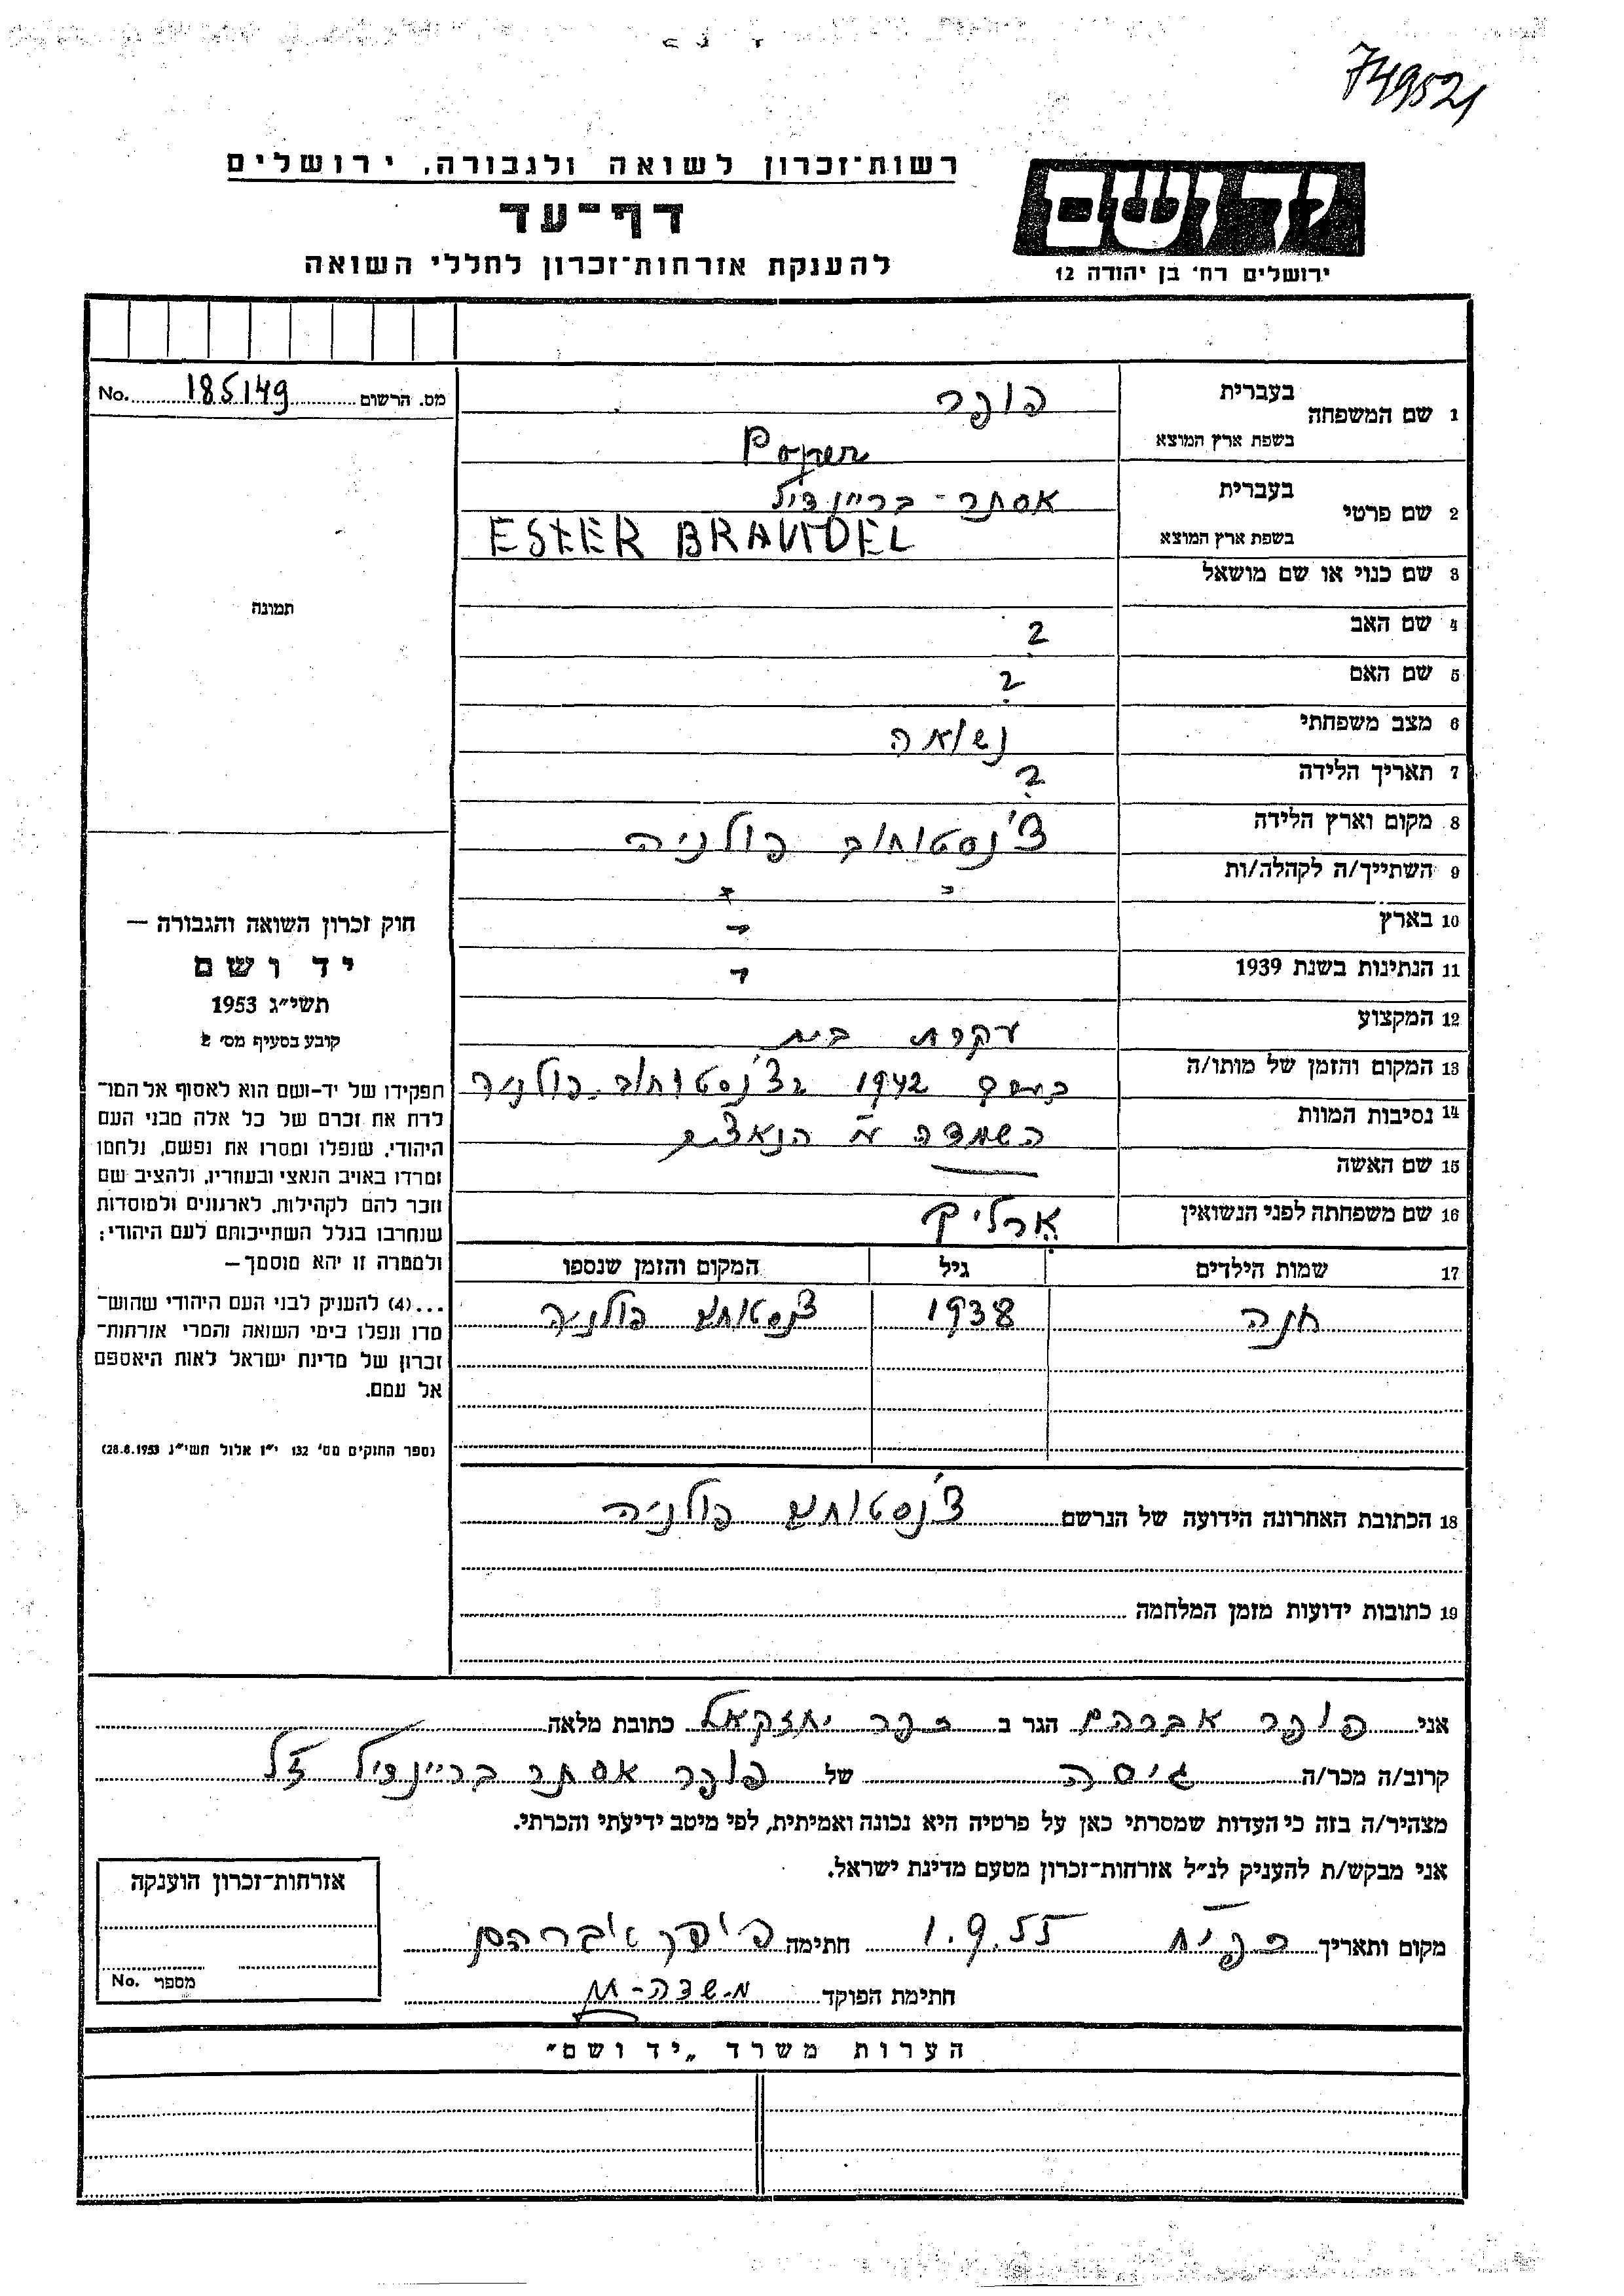 749521
רשות־זכרון לשואה ולגבורה, ירושלים
דף־עד
להענקת אזרחות־זכרון לחללי השואה
יד ושם
ירושלים רח׳ בן יהודה 12
מס. הרשום 185149 No.
1 שם המשפחה בעברית פופר
בשפת ארץ המוצא Poper
2 שם פרטי בעברית אסתר - בריינדיל
בשפת ארץ המוצא ESTER BRAINDEL
3 שם כנוי או שם מושאל
4 שם האב ?
5 שם האם ?
6 מצב משפחתי נשואה
7 תאריך הלידה ?
8 מקום וארץ הלידה צ'נסטוחוב פולניה
9 השתייך/ה לקהלה/ות
10 בארץ
11 הנתינות בשנת 1939
12 המקצוע עקרת בית
13 המקום והזמן של מותו/ה 1942 בצ'נסטוחוב פולניה
14 נסיבות המוות השמדה ע"י הנאצים
15 שם האשה —
16 שם משפחתה לפני הנשואין ארליך
17 שמות הילדים גיל המקום והזמן שנספו
חנה 1938 צ'נסטוחוב פולניה
18 הכתובת האחרונה הידועה של הנרשם צ'נסטוחוב פולניה
19 כתובות ידועות מזמן המלחמה
תמונה
חוק זכרון השואה והגבורה —
יד ושם
תשי״ג 1953
קובע בסעיף מס׳ 2
תפקידו של יד-ושם הוא לאסוף אל המו־
לדת את זכרם של כל אלה מבני העם
היהודי, שנפלו ומסרו את נפשם, נלחמו
ומרדו באויב הנאצי ובעוזריו, ולהציב שם
וזכר להם לקהילות, לארגונים ולמוסדות
שנחרבו בגלל השתייכותם לעם היהודי;
ולמטרה זו יהא מוסמך —
...(4) להעניק לבני העם היהודי שהוש־
מדו ונפלו בימי השואה והמרי אזרחות־
זכרון של מדינת ישראל לאות היאספם
אל עמם.
(ספר החוקים מס׳ 132 י״ז אלול תשי״ג 28.8.1953)
אני פופר אברהם הגר ב כפר יחזקאל כתובת מלאה
קרוב/ה מכר/ה גיסה של פופר אסתר בריינדיל ז"ל
מצהיר/ה בזה כי העדות שמסרתי כאן על פרטיה היא נכונה ואמיתית, לפי מיטב ידיעתי והכרתי.
אני מבקש/ת להעניק לנ״ל אזרחות־זכרון מטעם מדינת ישראל.
מקום ותאריך 1.9.55 חתימה פופר אברהם
חתימת הפוקד
אזרחות־זכרון הוענקה
מספר No.
הערות משרד „יד ושם״